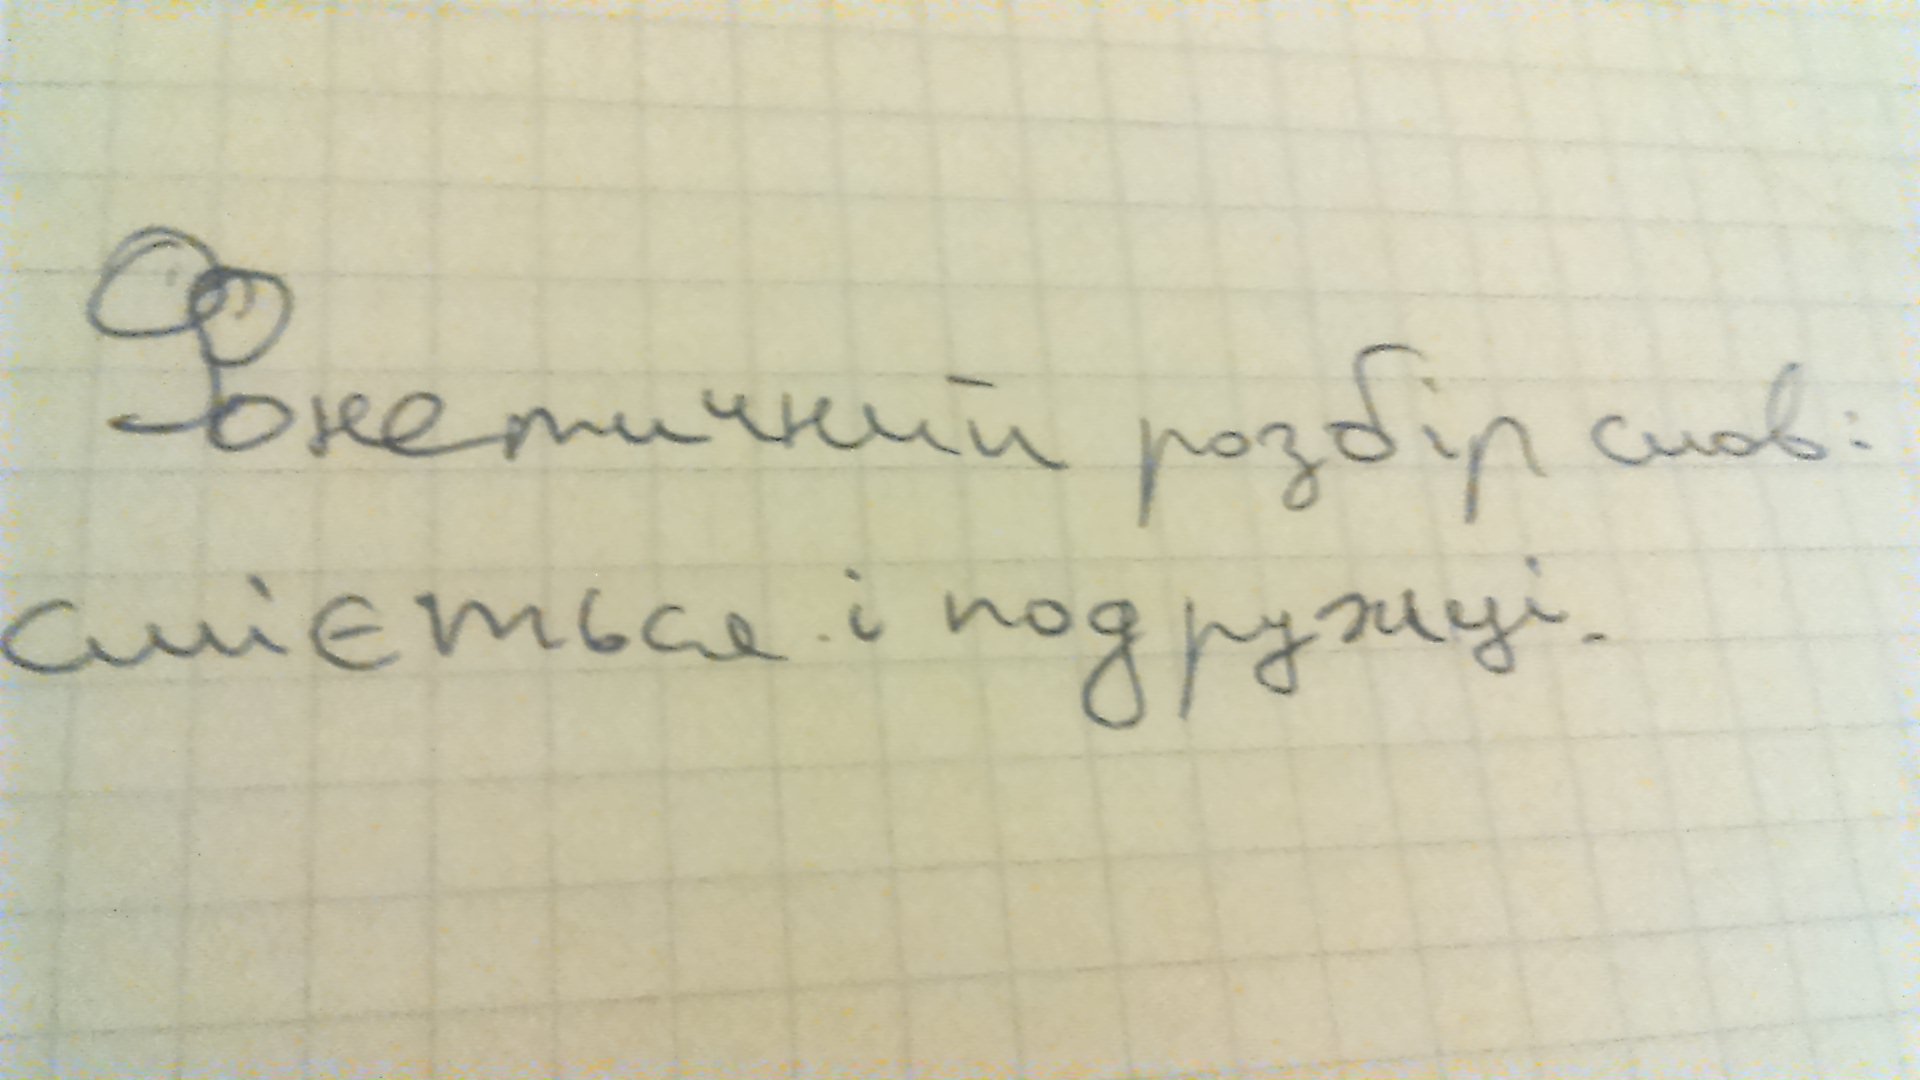 Фонетичний розбір слов:
сміється і подружці.